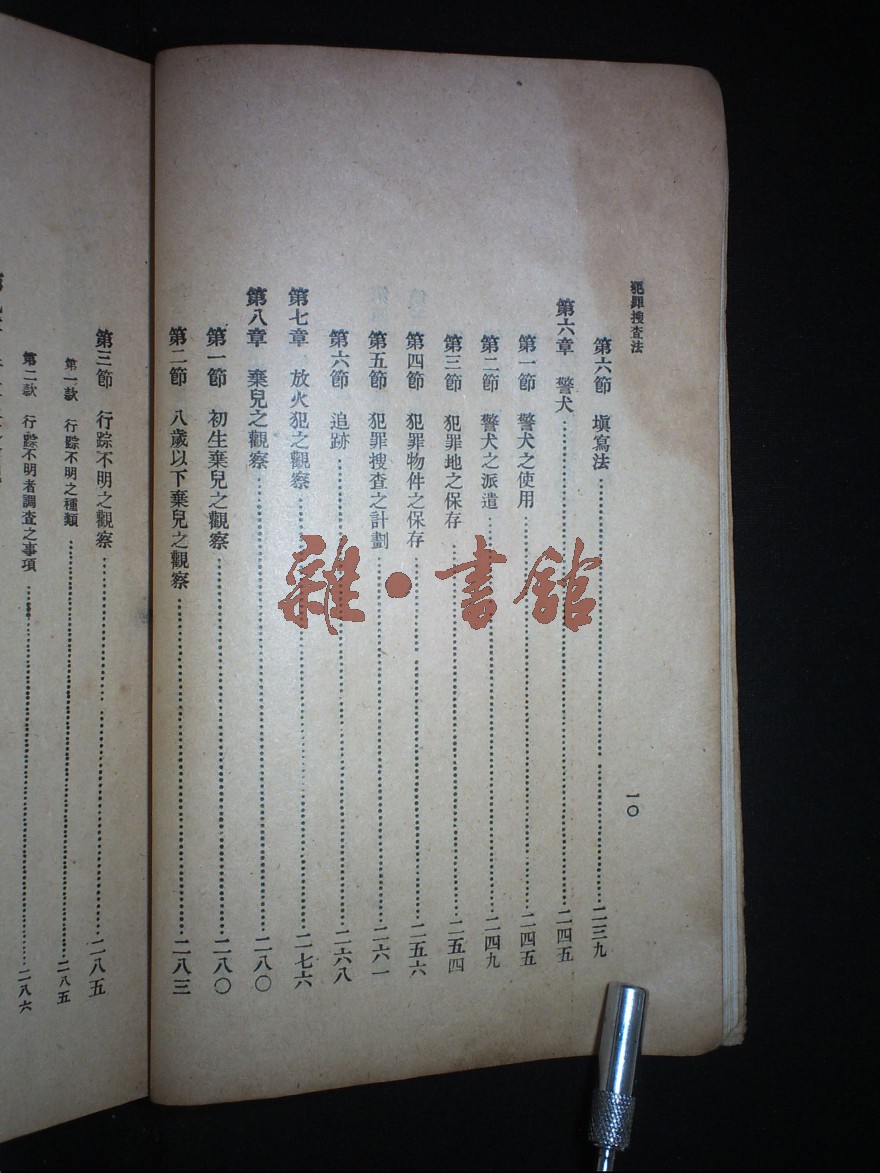 犯罪搜查法
一〇
第六節 塡寫法 二三九
第六章 警犬 二四五
第一節 警犬之使用 二四五
第二節 警犬之派遣 二四九
第三節 犯罪地之保存 二五四
第四節 犯罪物件之保存 二五六
第五節 犯罪搜查之計劃 二六一
第六節 追跡 二六八
第七章 放火犯之觀察 二七六
第八章 棄兒之觀察 二八〇
第一節 初生棄兒之觀察 二八〇
第二節 八歲以下棄兒之觀察 二八三
第三節 行踪不明之觀察 二八五
第一款 行踪不明之種類 二八五
第二款 行踪不明者調查之事項 二八六
雜·書館